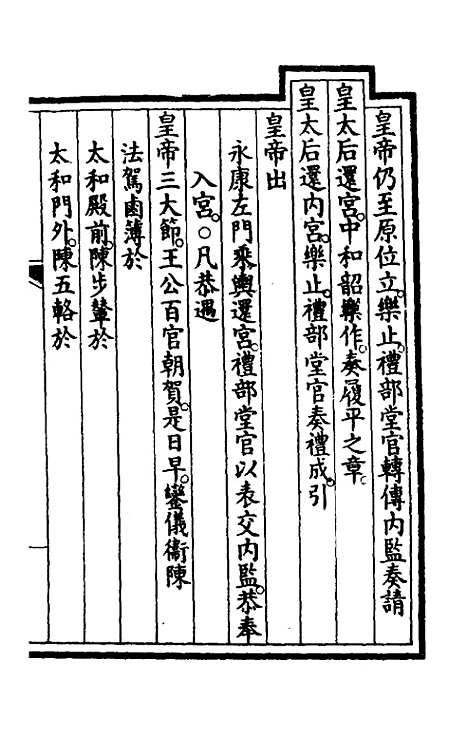 皇帝仍至原位立。樂止。禮部堂官轉傳内監奏請
皇太后還宫。中和韶樂作。奏履平之章。
皇太后還内宫。樂止。禮部堂官奏禮成。引
皇帝出
永康左門乘輿還宫。禮部堂官以表交内監。恭奉
入宫。○凡恭遇
皇帝三大節。王公百官朝賀。是日早。鑾儀衞陳
法駕鹵簿於
太和殿前。陳步輦於
太和門外。陳五輅於